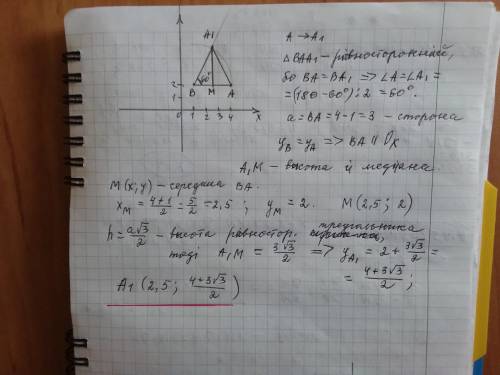 A1
60°
2
1
B M A
1 2 3 4 x
A → A1
△BAA1 – рівносторонній,
бо BA = BA1 => ∠A = ∠A1 =
= (180 - 60°) : 2 = 60°.
a = BA = 4 - 1 = 3 - сторона
yB = yA => BA || Ox
A1M – висота й медіана.
M(x; y) – середина BA.
xM = (4+1)/2 = 5/2 = 2,5 ; yM = 2. M(2,5; 2)
h = a√3/2 – висота рівностор. трикутника,
тоді A1M = 3√3/2 => yA1 = 2 + 3√3/2 =
= (4+3√3)/2 ;
A1 (2,5; (4+3√3)/2)